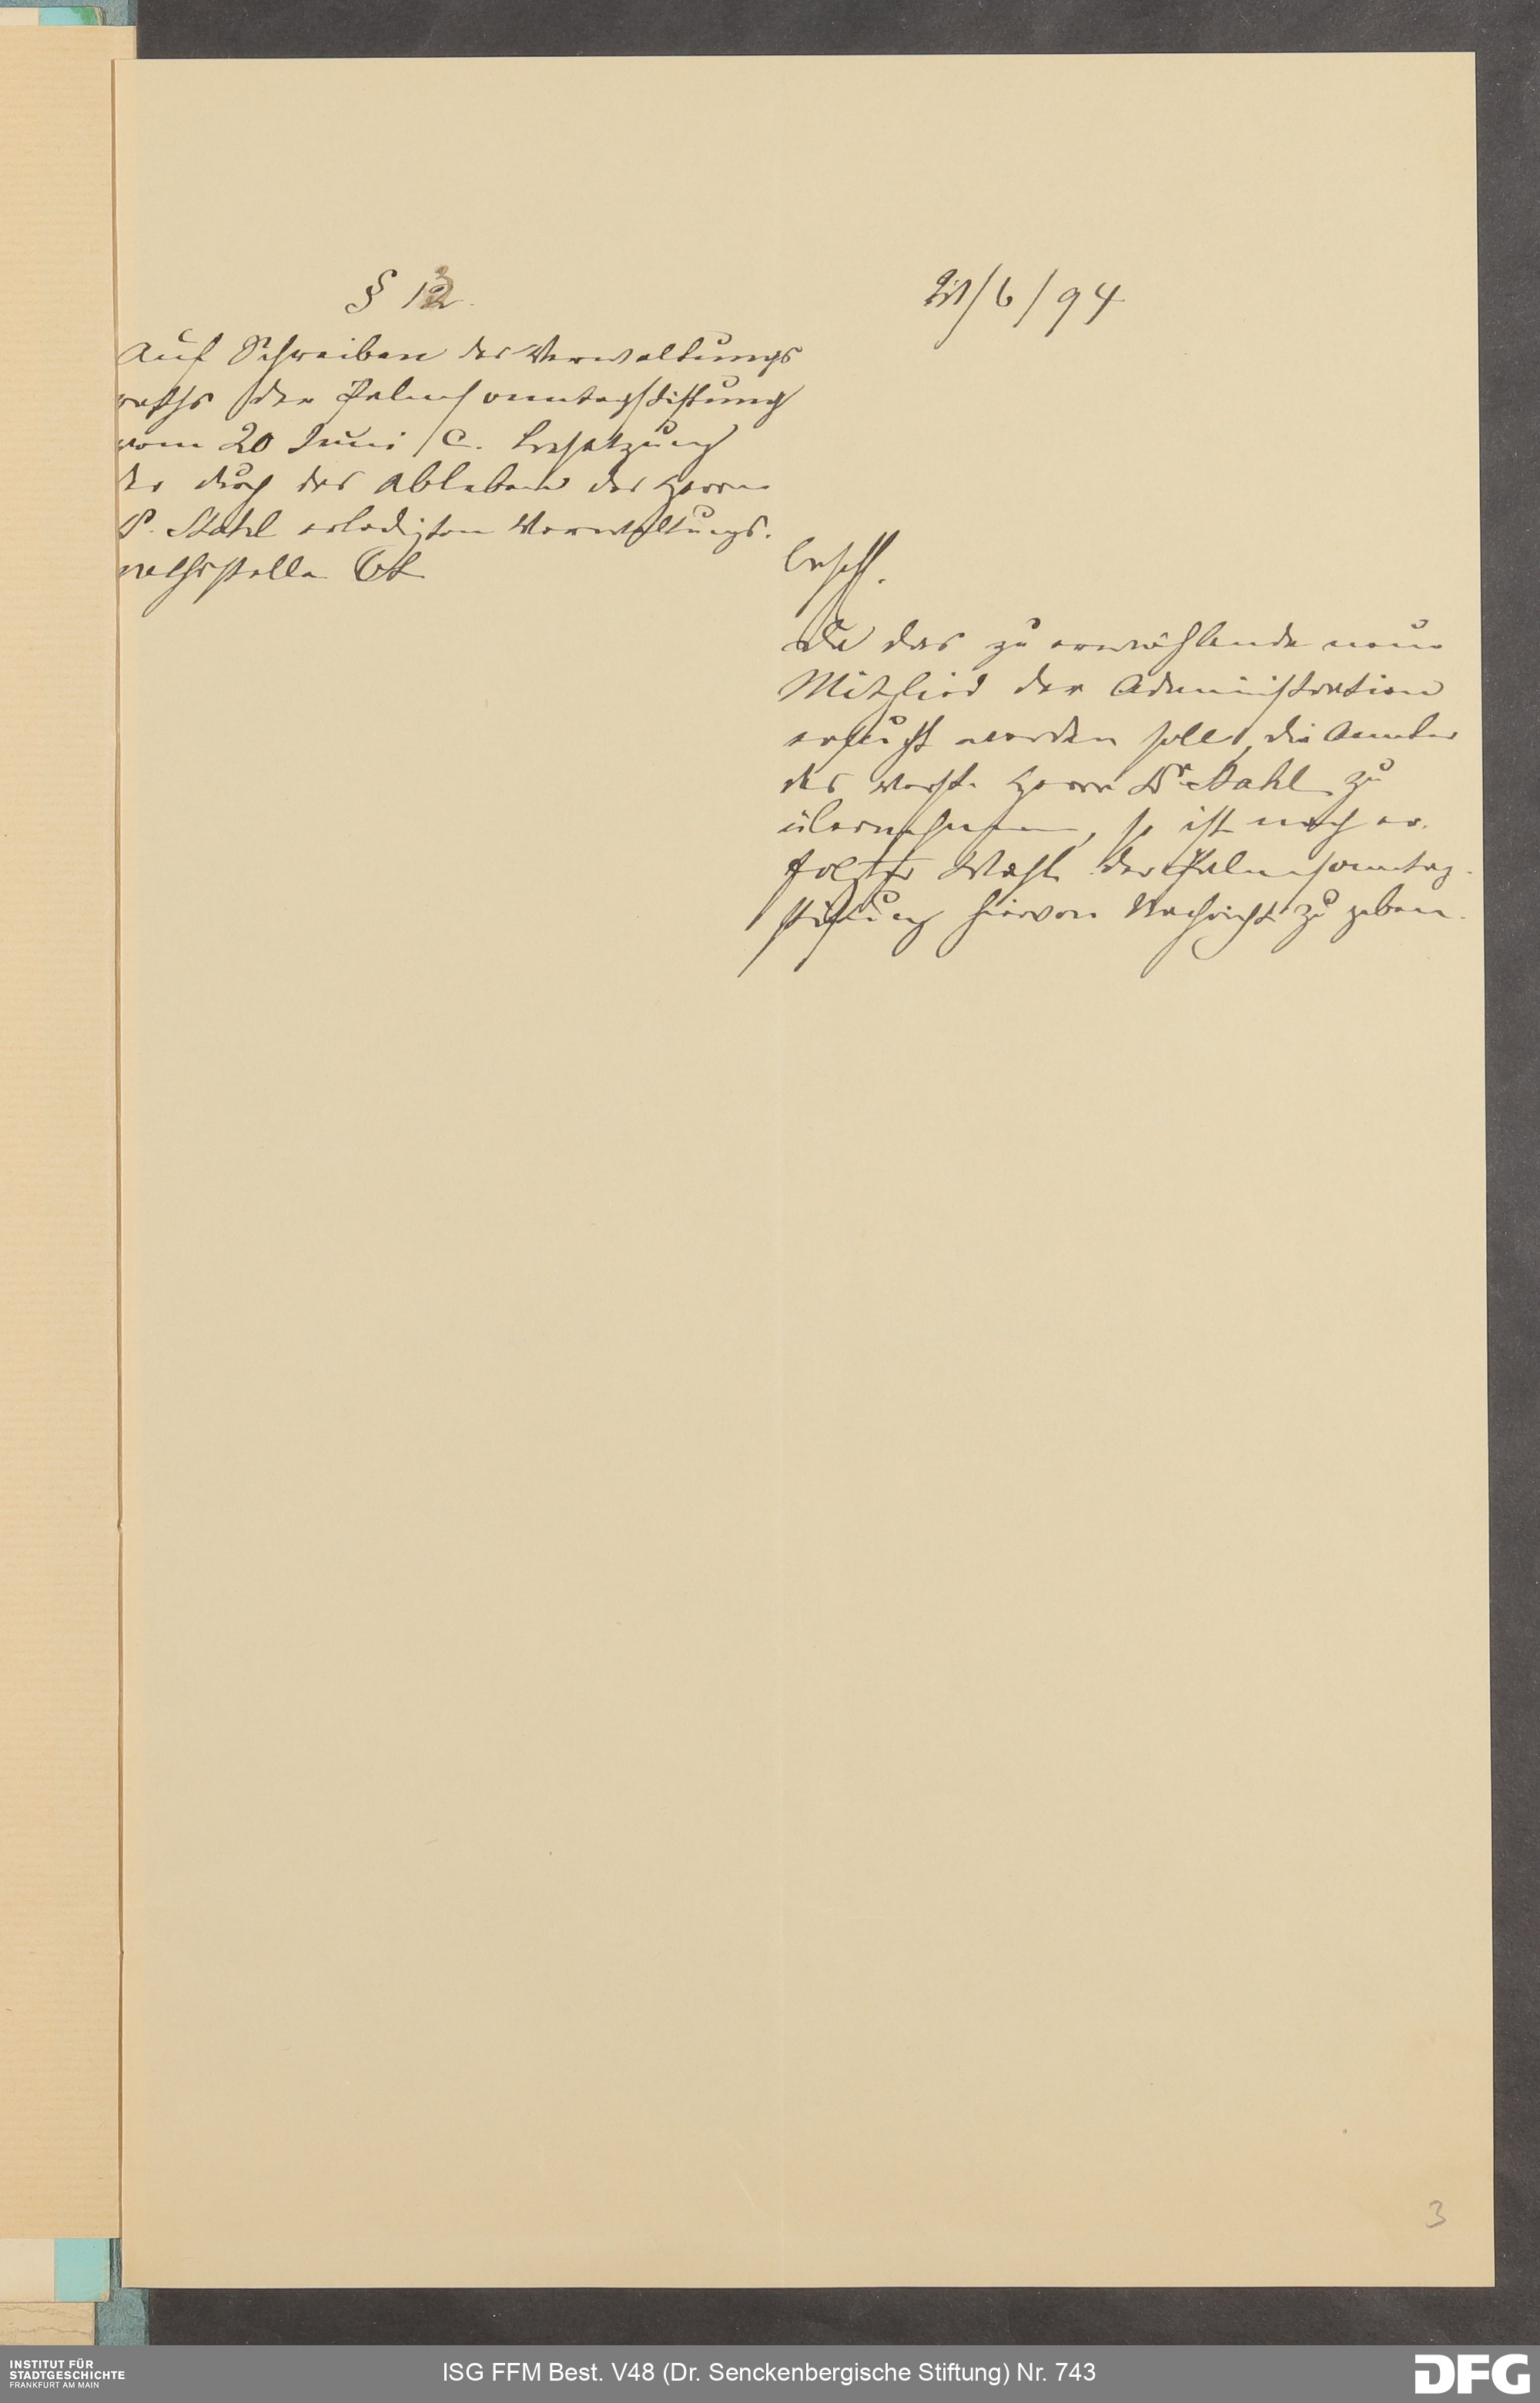 § 13.
21/6/94
Auf Schreiben des Verwaltungs
raths der Palmsonntagstiftung
vom 20 Juni /c. Besetzung
der durch das Ableben des Herrn
P. Stahl erledigten Verwaltungs-
rathsstelle btr
beschl.
Da das zu erwählende neue
Mitglied der Administration
ersucht werden soll, die Aemter
des verst. Herrn Dr. Stahl zu
übernehmen, so ist nach er-
folgter Wahl der Palmsonntag-
stiftung hiervon Nachricht zu geben.
3
INSTITUT FÜR
STADTGESCHICHTE
FRANKFURT AM MAIN
ISG FFM Best. V48 (Dr. Senckenbergische Stiftung) Nr. 743
DFG